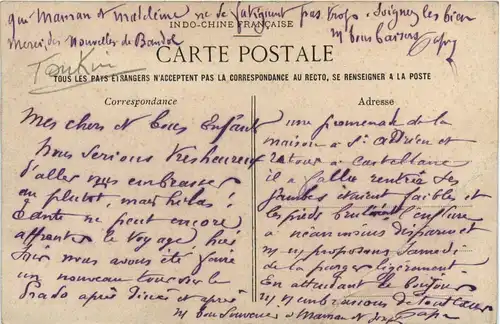 que Maman et Madeleine ne se fatiguent pas trop. Soignez les bien
INDO-CHINE FRANÇAISE
Merci des Nouvelles de Bandol
Tonkin
CARTE POSTALE
TOUS LES PAYS ETRANGERS N'ACCEPTENT PAS LA CORRESPONDANCE AU RECTO, SE RENSEIGNER A LA POSTE
Correspondance
Mes chers et bons Enfants
Nous serions très heureux
d'aller vous embrasser
au plutôt, mais hélas!
Tante ne peut encore
affronter le voyage, hier
soir nous avons été faire
un nouveau tour sur le
Prado après diner et après
Adresse
une promenade de la
maison à St Adrien et
retour à Castellane
il a fallu rentrer ses
jambes étaient faibles et
les pieds
à néanmoins disparu et
proposons Samedi
de la purger légèrement.
En attendant le
embrassons de tout cœur
bon Souvenir à Maman et